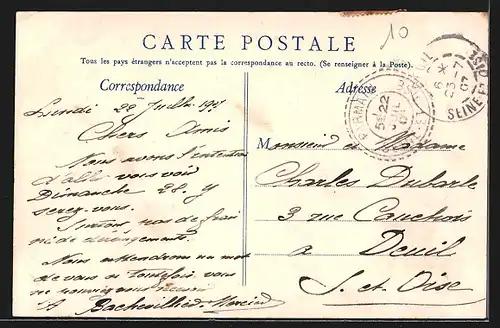 10
CARTE POSTALE
Tous les pays étrangers n'acceptent pas la correspondance au recto. (Se renseigner à la Poste).
Correspondance
Adresse
Lundi 22 Juillet 1907
Chers Amis
Nous avons l'intention
d'allé vous voir
Dimanche 28. Y
serez-vous.
Surtout pas de frai
ni de dérangements.
Nous attendrons un mot
de vous si toutefois vous
ne pouviez nous
Monsieur et Madame
Charles Dubarle
3 rue Cauchois
a Deuil
S. et Oise
22
6 *
23 -7
07
SEINE ET OISE